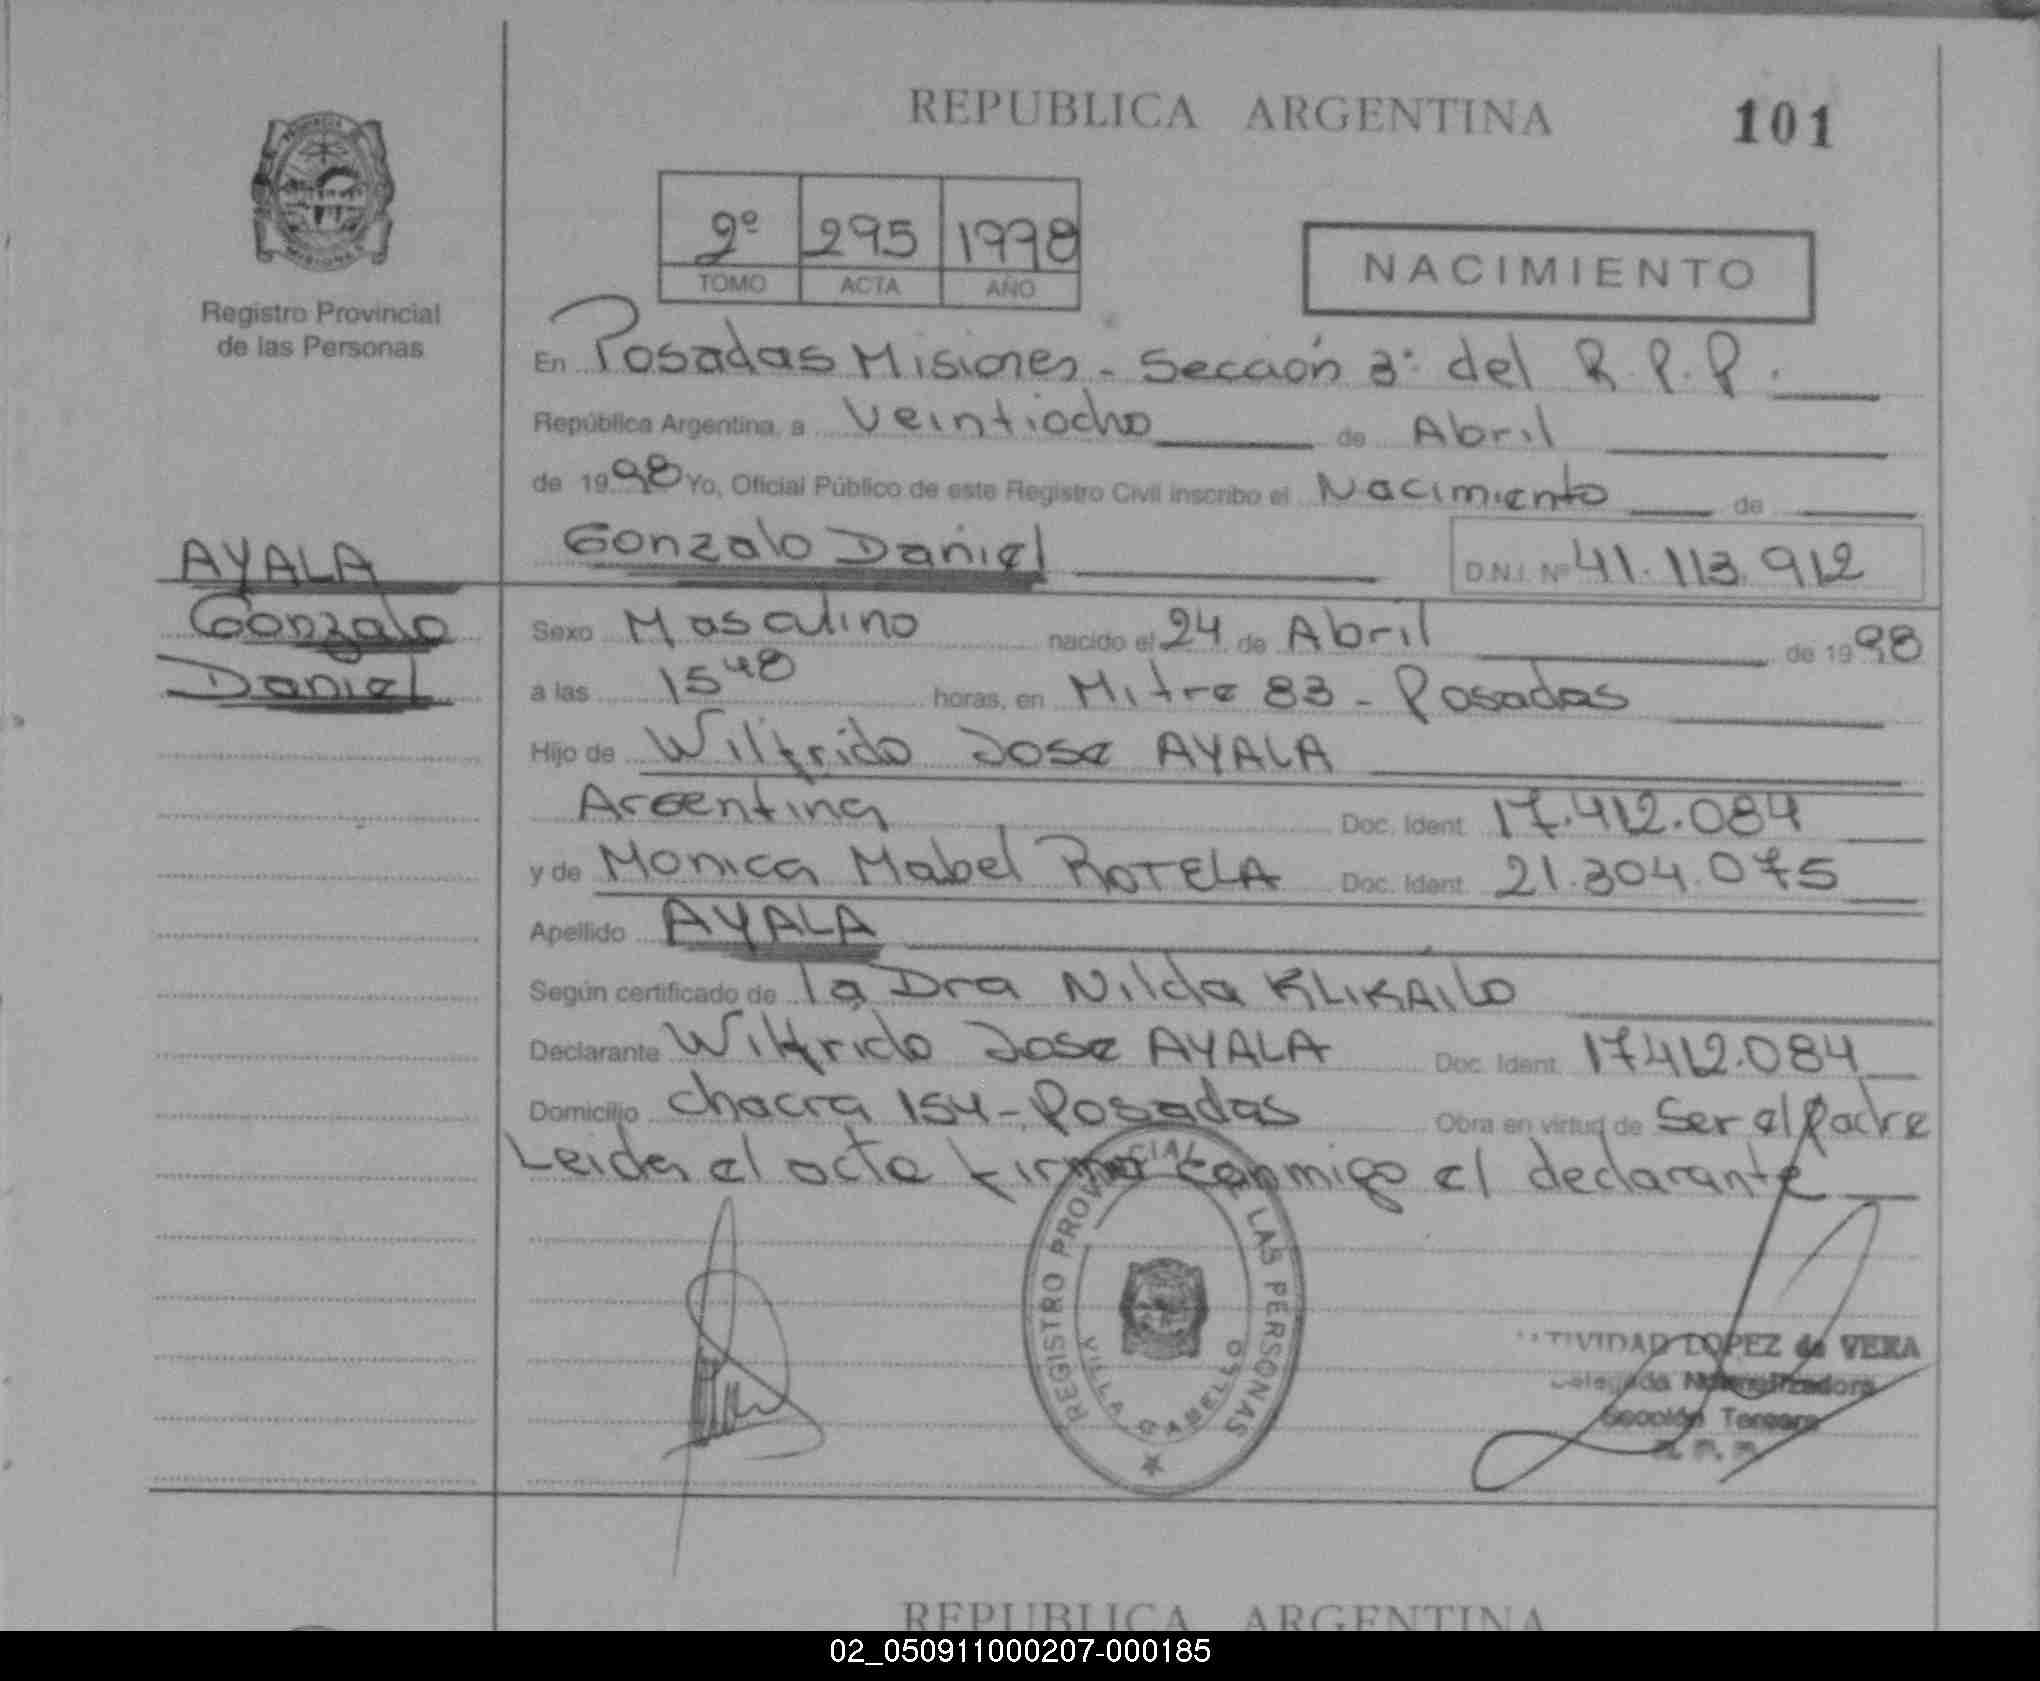 REPUBLICA ARGENTINA
101
2º 295 1998
TOMO ACTA AÑO
NACIMIENTO
Registro Provincial
de las Personas
En Posadas Misiones - Sección 3ª del R.P.P.
República Argentina, a Veintiocho de Abril
de 1998 Yo, Oficial Público de este Registro Civil inscribo el Nacimiento de
Gonzalo Daniel D.N.I. Nº 41.113.912
AYALA
Gonzalo
Daniel
Sexo Masculino nacido el 24 de Abril de 1998
a las 15 48 horas, en Mitre 83 - Posadas
Hijo de Wilfrido Jose AYALA
Argentina Doc. Ident. 17.412.084
y de Monica Mabel ROTELA Doc. Ident. 21.304.075
Apellido AYALA
Según certificado de la Dra Nilda KLIKAILO
Declarante Wilfrido Jose AYALA Doc. Ident. 17412.084
Domicilio chacra 154 - Posadas Obra en virtud de Ser el padre
Leida el acta firma conmigo el declarante
REGISTRO PROVINCIAL DE LAS PERSONAS
VILLA CABELLO
LOPEZ de VERA
Delegada Normalizadora
Sección Tercera
R. P. P.
REPUBLICA ARGENTINA
02_050911000207-000185